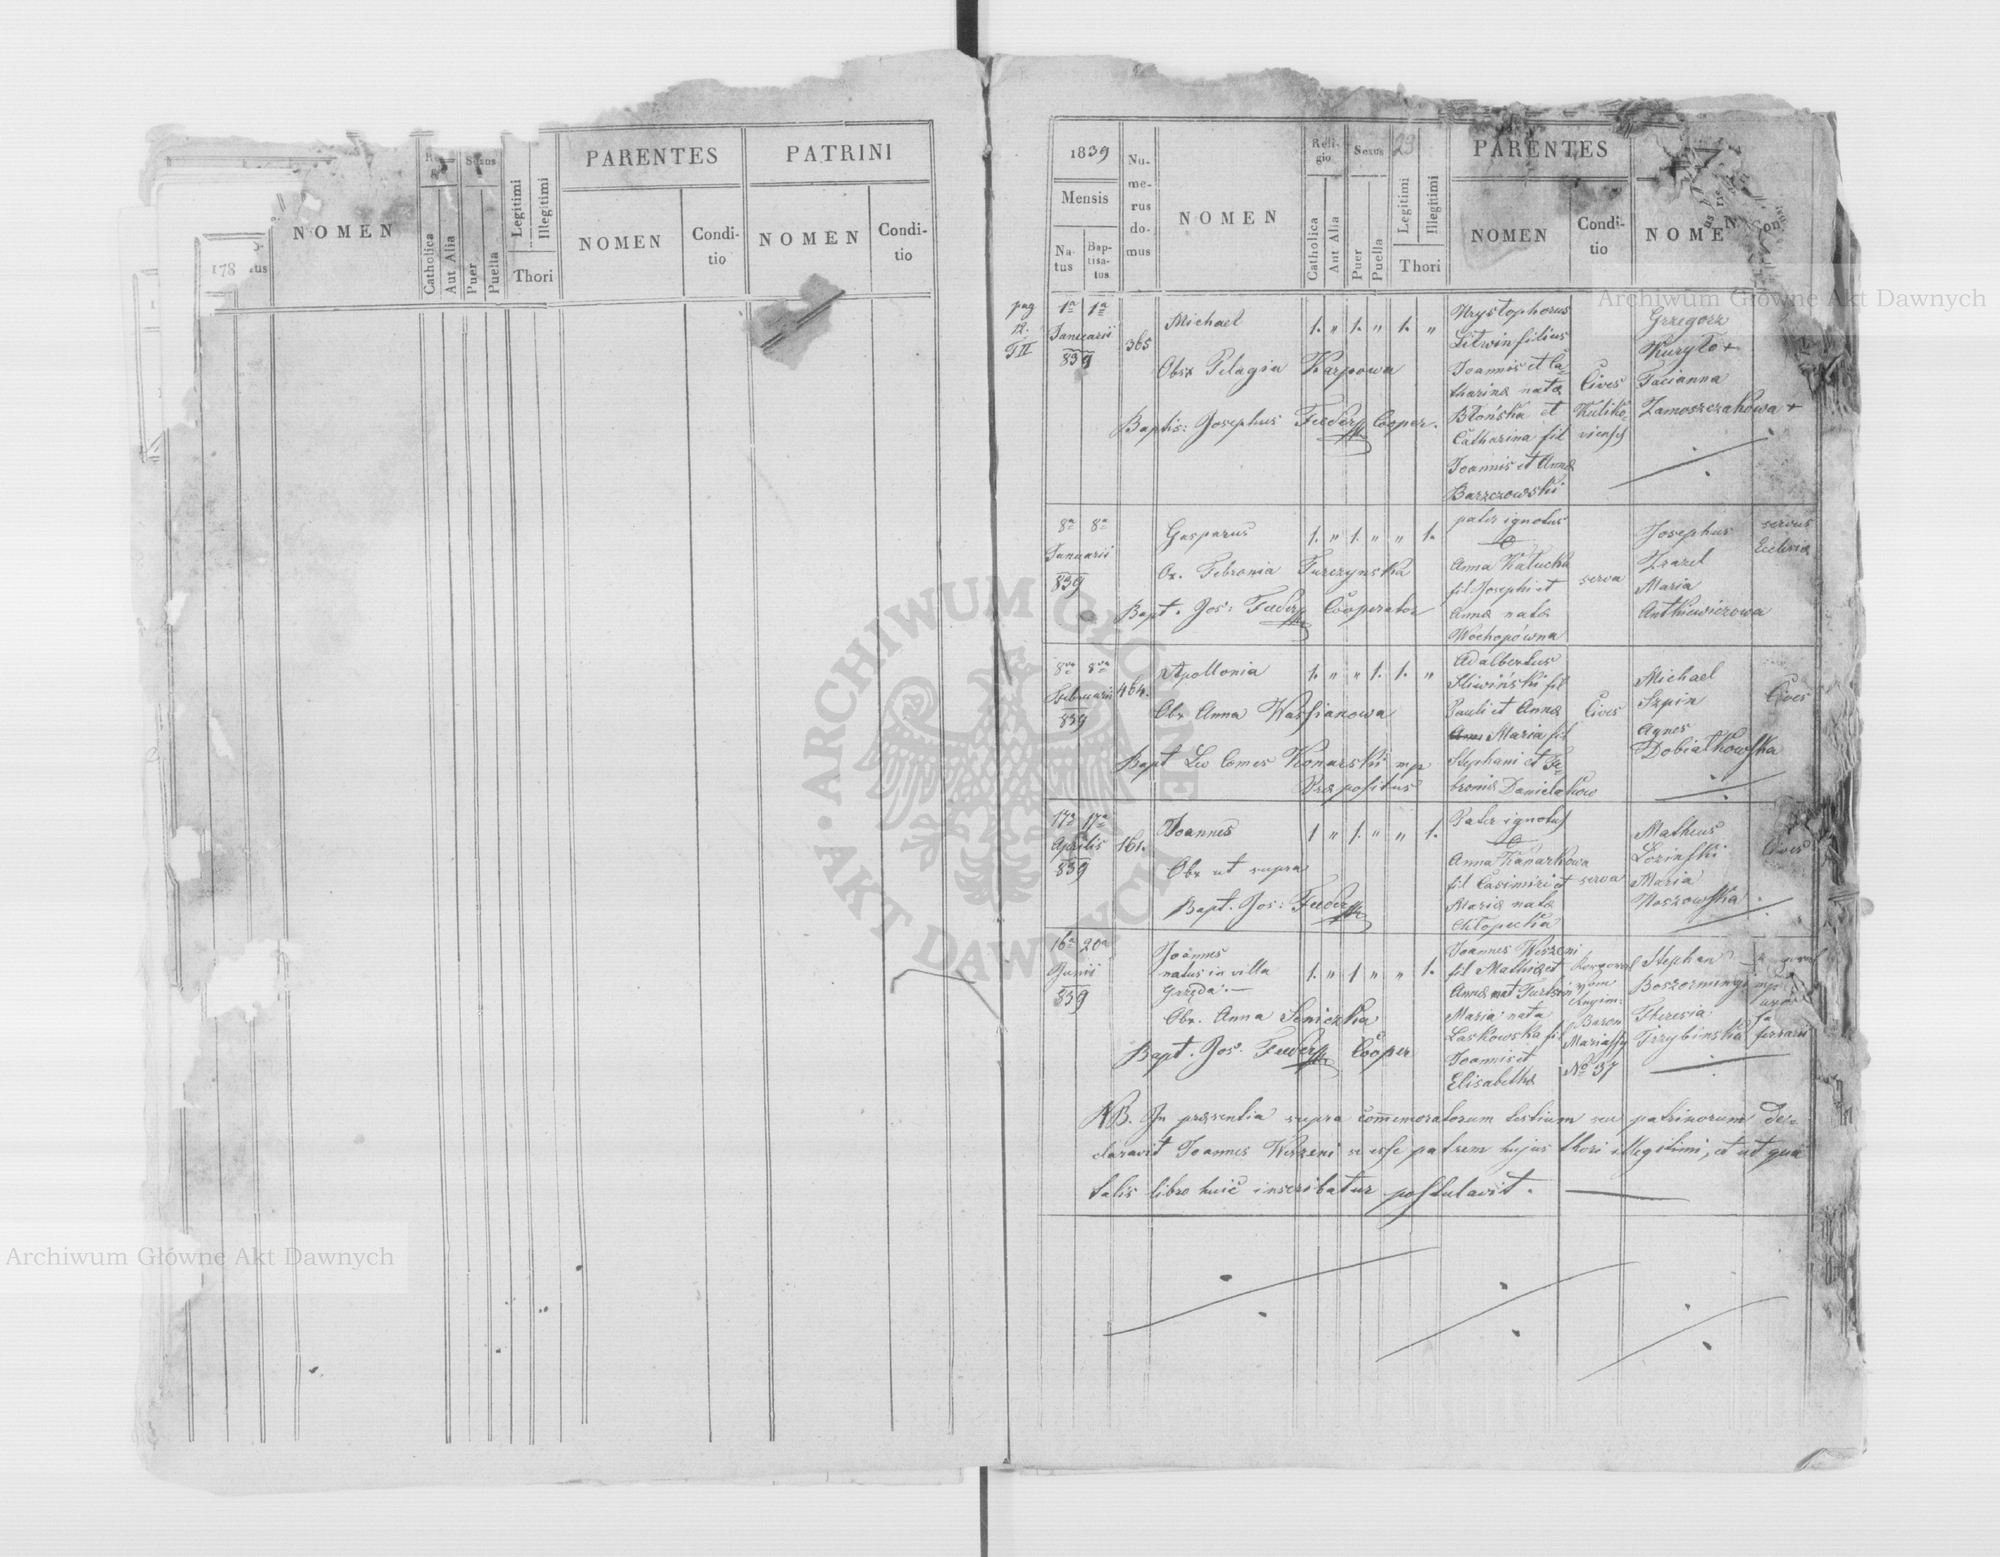 NOMEN
Catholica
Aut Alia
Sexus
Puer
Puella
Legitimi
Illegitimi
Thori
PARENTES
NOMEN
Condi-
tio
PATRINI
NOMEN
Condi-
tio
178
tus
1839
Mensis
Na-
tus
Bap-
tisa-
tus
Nu-
me-
rus
do-
mus
NOMEN
Reli-
gio
Catholica
Aut Alia
Sexus
Puer
Puella
23
Legitimi
Illegitimi
Thori
PARENTES
NOMEN
Condi-
tio
NOMEN
pag
12.
T II
1a 1a
Januarii
839
365
Michael
Obx Pelagia Karpowa
Baptis: Josephus Feeder Cooper.
1. " 1. " 1. "
Krystophorus
Litwin filius
Joannis et Ca-
tharina nata
Błońska et
Catharina fil
Joannis et Anna
Barzczowski
Cives
Kuliko-
vienses
Grzegorz
Kuryło +
Tacianna
Zamoszczakowa +
8a 8a
Januarii
839
Gasparus
Ox. Febronia Turczynska
Bapt. Jos: Feeder Cooperator
1. " 1. " " 1.
pater ignotus
Anna Kałucka
fil Josephi et
Anna nata
Wochopówna
serva
Josephus
Zrazel
Maria
Anthiewiczowa
servus
Ecclesia
8va 8va
Februarii
839
464.
Apollonia
Obx Anna Wassianowa
Bapt Leo Comes Konarski mp
Præpositus
1. " " 1. 1. "
Adalbertus
Sliwiński fil
Pauli et Anna
Maria fil
Stephani et Fe-
bronia Danielakow
Cives
Michael
Szpin
Agnes
Dobiatkowska
Cives
17a 17a
Aprilis
839
161.
Joannes
Obx ut supra
Bapt. Jos: Feeder
1 " 1. " " 1.
Pater ignotus
Anna Kanarkowa
fil Casimiri et
Maria nata
Chłopecka
serva
Matheus
Lozinski
Maria
Noszowska
Cives
16a 20a
Junii
839
Joannes
natus in villa
Grzęda. —
Obx. Anna Seniczka
Bapt. Jos. Feeder Cooper
1. " 1 " " 1.
Joannes Weszeni
fil Mathia et
Anna nat
Maria nata
Laskowska fil
Joannis et
Elisabetha
Baron
Mariassy
No 37
Stephan
Boszormingi
Theresia
Trzybinska
NB. In præsentia supra commemoratorum testium seu patrinorum de-
claravit Joannes Weszeni se esse patrem hujus thori illegitimi, et ut qua
talis libro huic inscribatur postulavit.
Archiwum Główne Akt Dawnych
Archiwum Główne Akt Dawnych
ARCHIWUM GŁÓWNE
AKT DAWNYCH